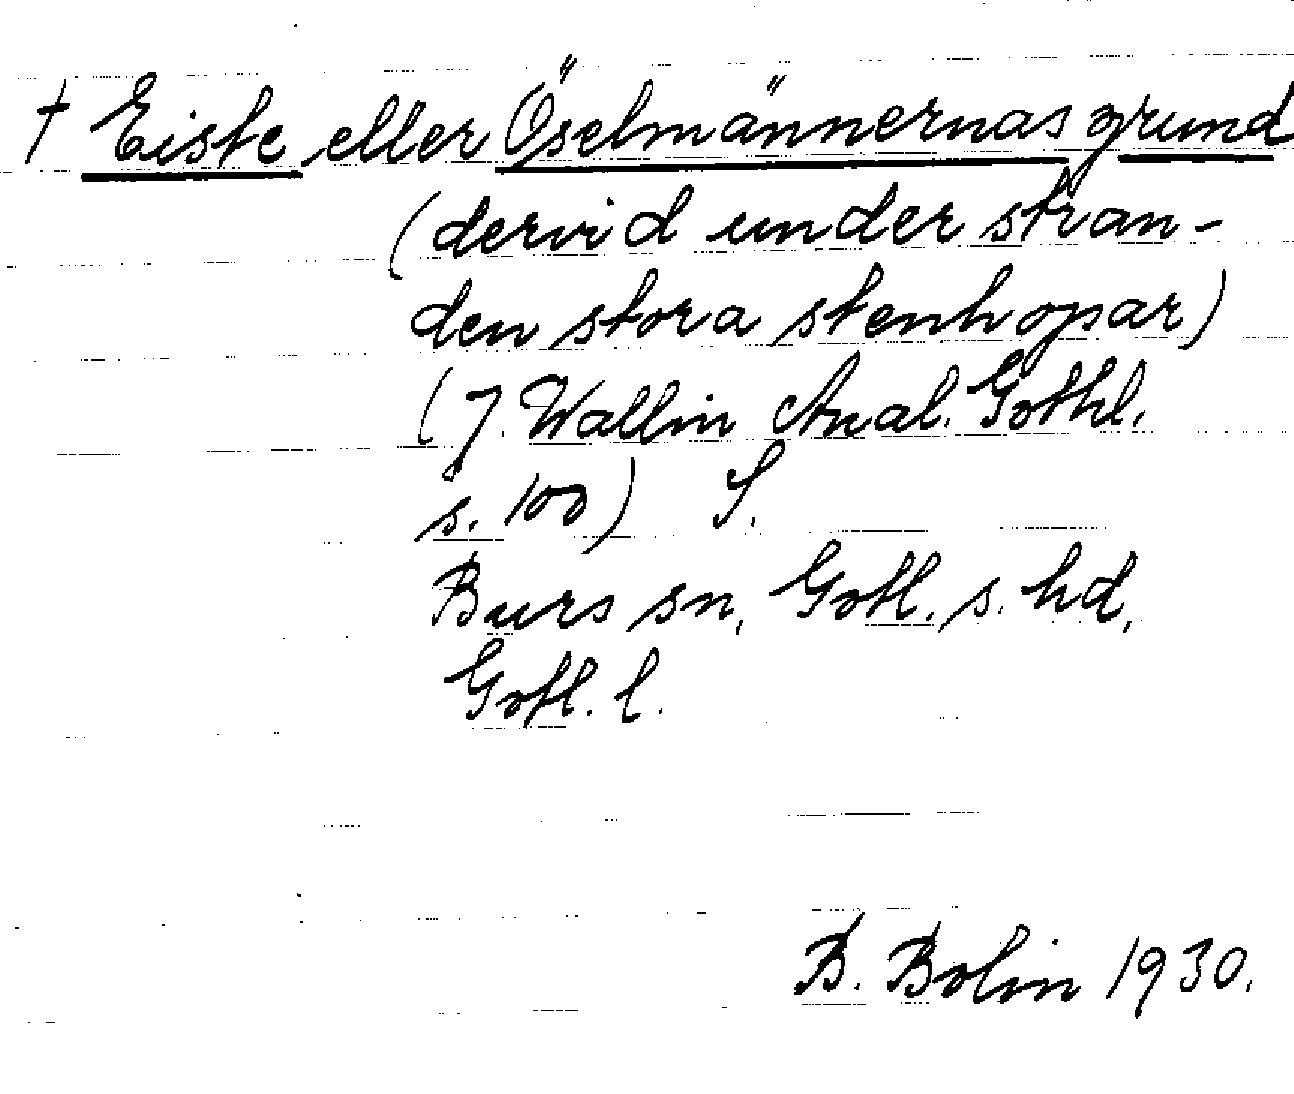 † Eiste eller Öselmännernas grund
(dervid under stran-
den stora stenhopar)
(J. Wallin Anal. Gothl.
s. 100) S.
Burs sn, Gotl. s. hd,
Gotl. l.
B. Bolin 1930.